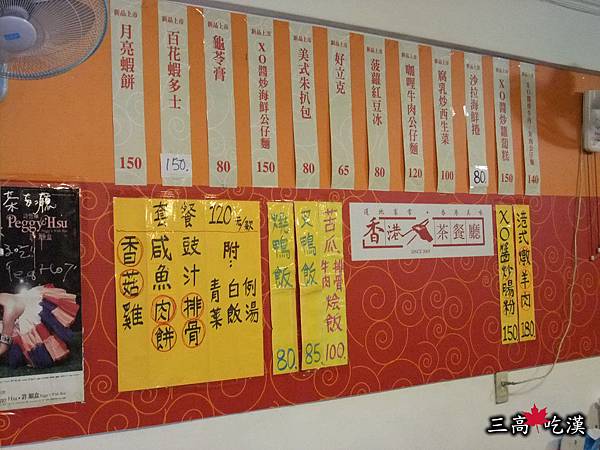 新品上市
月亮蝦餅
150
新品上市
百花蝦多士
150.
新品上市
龜苓膏
80
新品上市
XO醬炒海鮮公仔麵
150
新品上市
美式朱扒包
80
新品上市
好立克
65
新品上市
菠蘿紅豆冰
80
新品上市
咖哩牛肉公仔麵
120
新品上市
腐乳炒西生菜
100
新品上市
沙拉海鮮捲
80.
新品上市
XO醬炒蘿蔔糕
150
140
套餐120
香菇雞
咸魚肉餅
豉汁排骨
附:白飯
青菜
例湯
燒鴨飯
80.
叉鴨飯
85
苦瓜排骨
牛肉
燴飯
100
道地家常 香港美味
香港茶餐廳
SINCE 2003
XO醬炒腸粉
150
港式燉羊肉
180
Peggy Hsu
三高吃漢